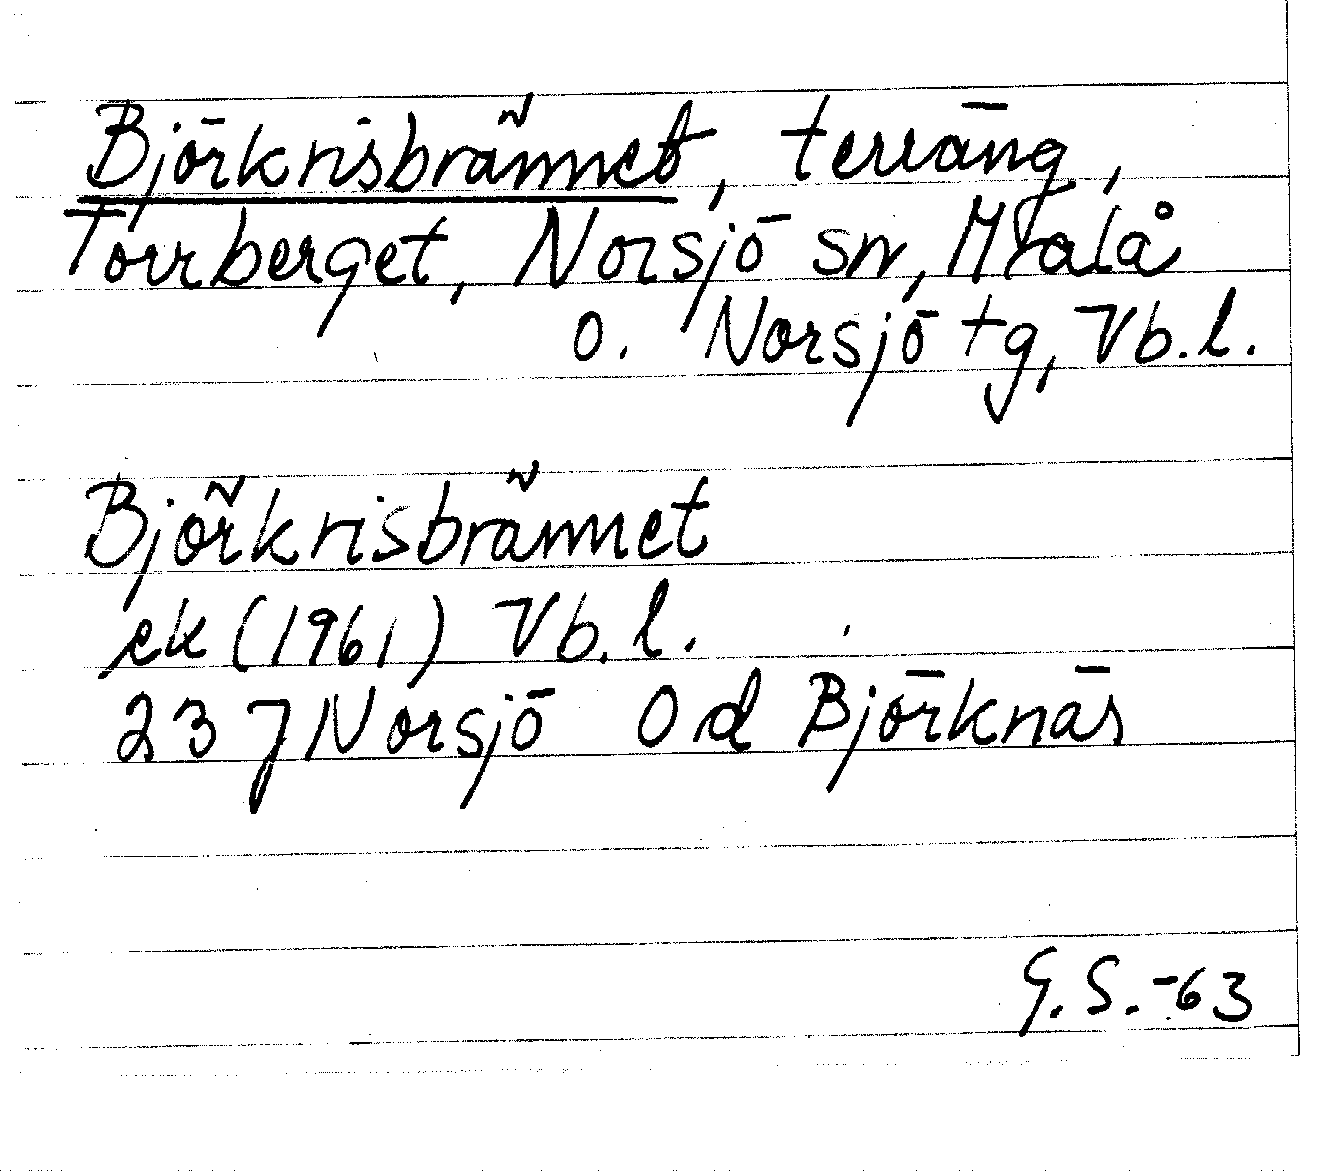 Björkrisbrännet, terräng,
Torrberget, Norsjö sn, Malå
o. Norsjö tg, Vb.l.
Björkrisbrännet
ek (1961) Vb.l.
23 J Norsjö Od Björknäs
G.S.-63